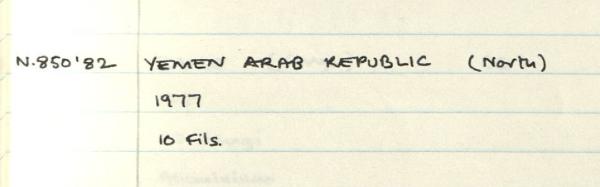 N.850'82 YEMEN ARAB REPUBLIC (North)
1977
10 Fils.